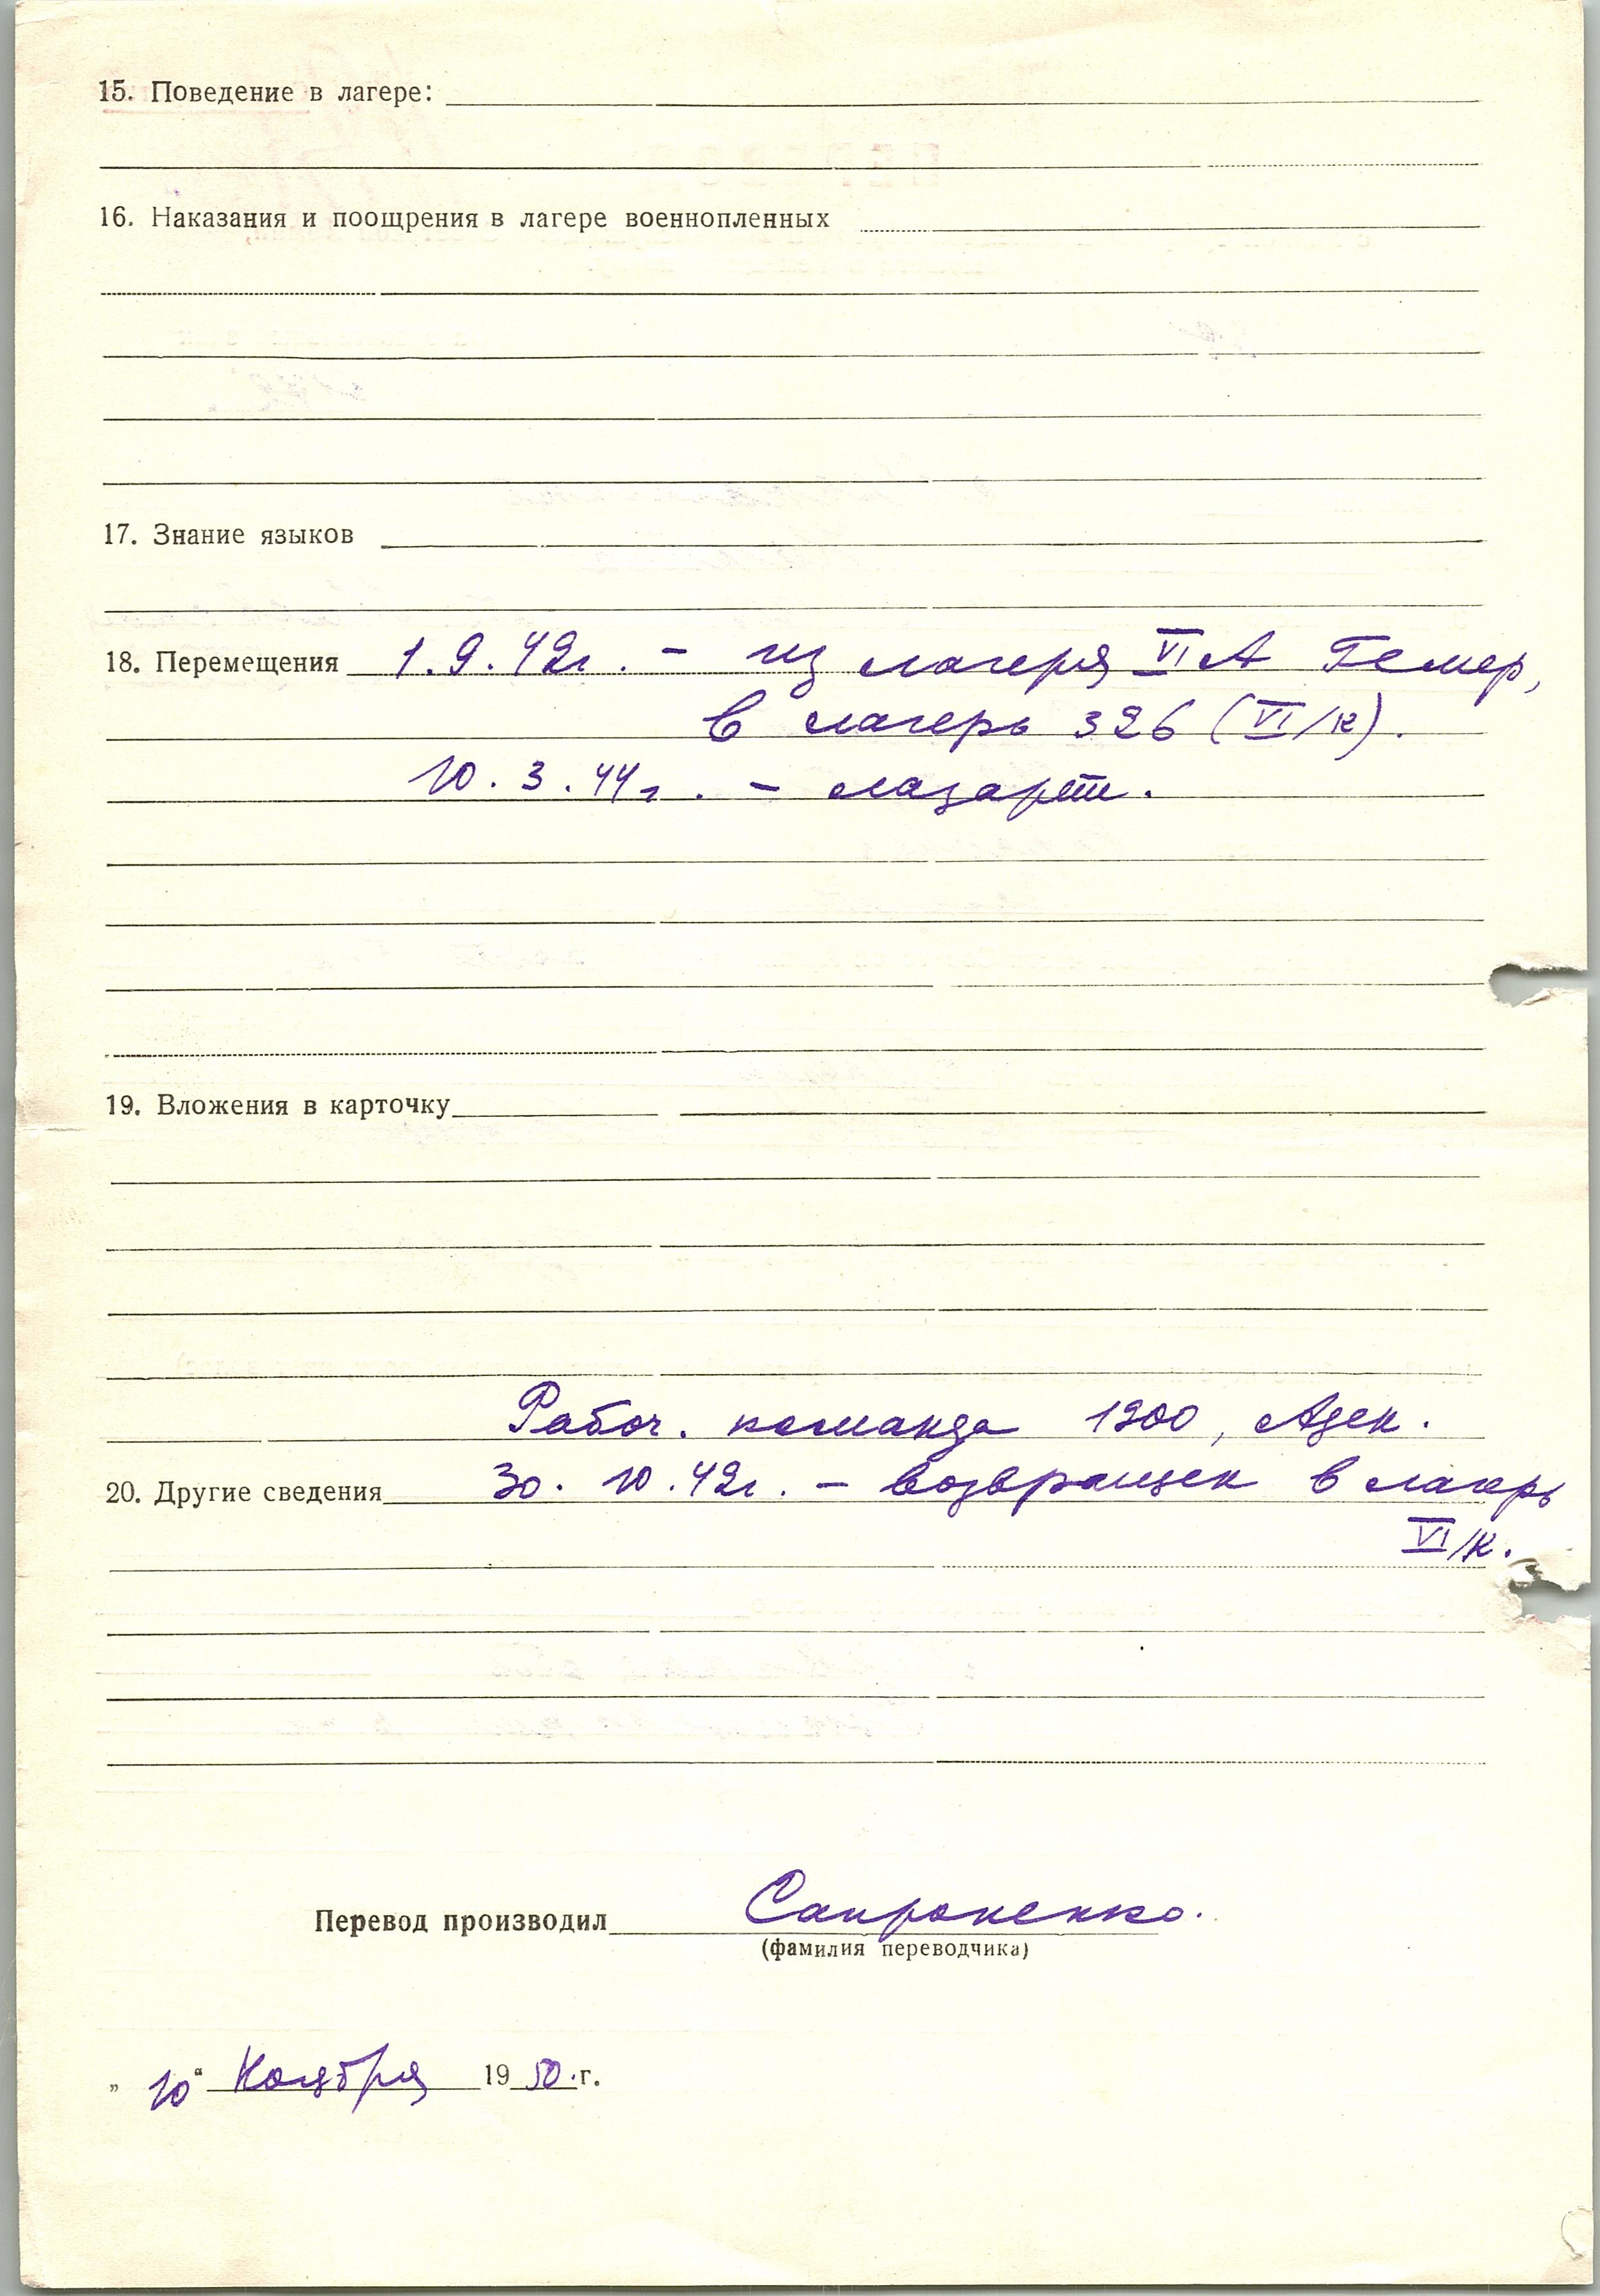 15. Поведение в лагере:
16. Наказания и поощрения в лагере военнопленных
17. Знание языков
18. Перемещения 1.9.42г. - из лагеря VI А Гемер,
в лагерь 326 (VI/К).
10.3.44г. - лазарет.
19. Вложения в карточку
Рабоч. команда 1200,
20. Другие сведения 30.10.42г. - возвращен в лагерь
VI/К.
Перевод производил Сапроненко.
(фамилия переводчика)
„ 10 “ Ноября 1950.г.